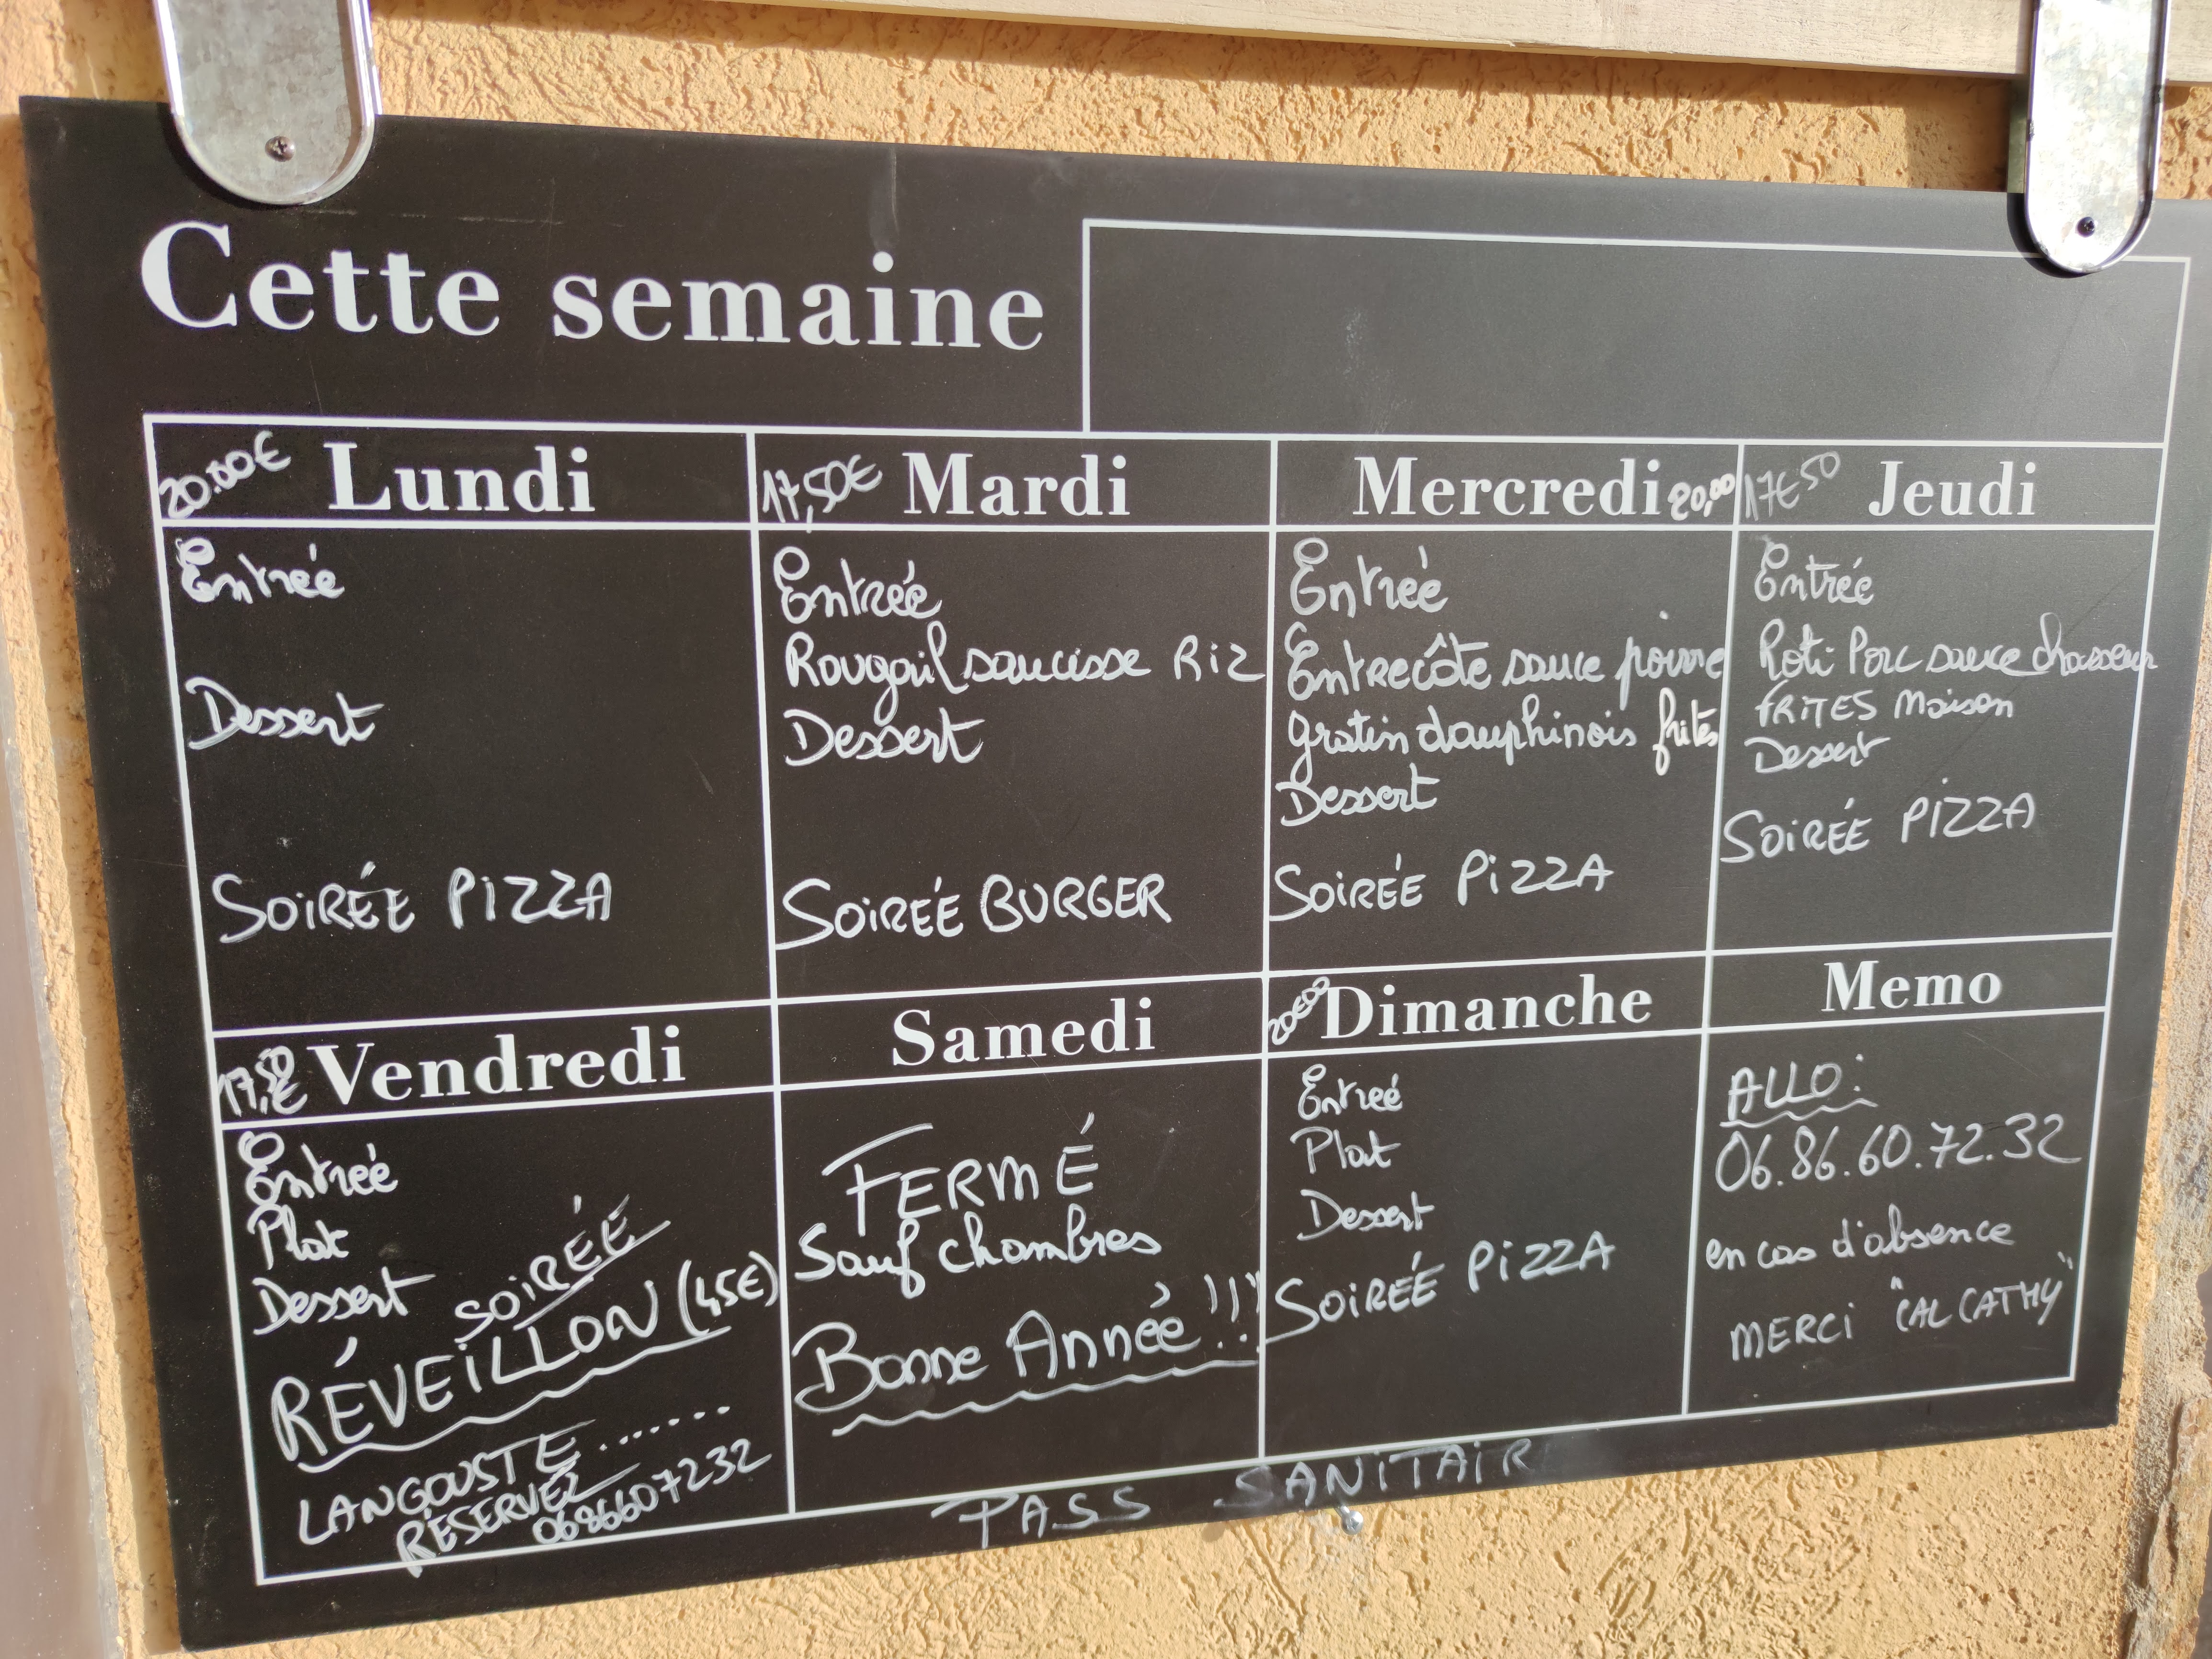 Cette semaine
20.00€ Lundi
Entrée
Dessert
SOIRÉE PIZZA
17,50€ Mardi
Entrée
Rougail saucisse Riz
Dessert
SOIRÉE BURGER
Mercredi 20,00
Entrée
Entrecôte sauce poivre
gratin dauphinois frites
Dessert
SOIRÉE PIZZA
17€50 Jeudi
Entrée
Roti Porc sauce chasseur
FRITES Maison
Dessert
SOIRÉE PIZZA
17,50€ Vendredi
Entrée
Plat
Dessert
SOIRÉE
RÉVEILLON (45€)
LANGOUSTE.......
RÉSERVEZ
0686607232
Samedi
FERMÉ
Sauf chambres
Bonne Année!!!
20€00 Dimanche
Entreé
Plat
Dessert
SOIRÉE PIZZA
Memo
ALLO:
06.86.60.72.32
en cas d'absence
MERCI "CAL CATHY"
PASS SANITAIR